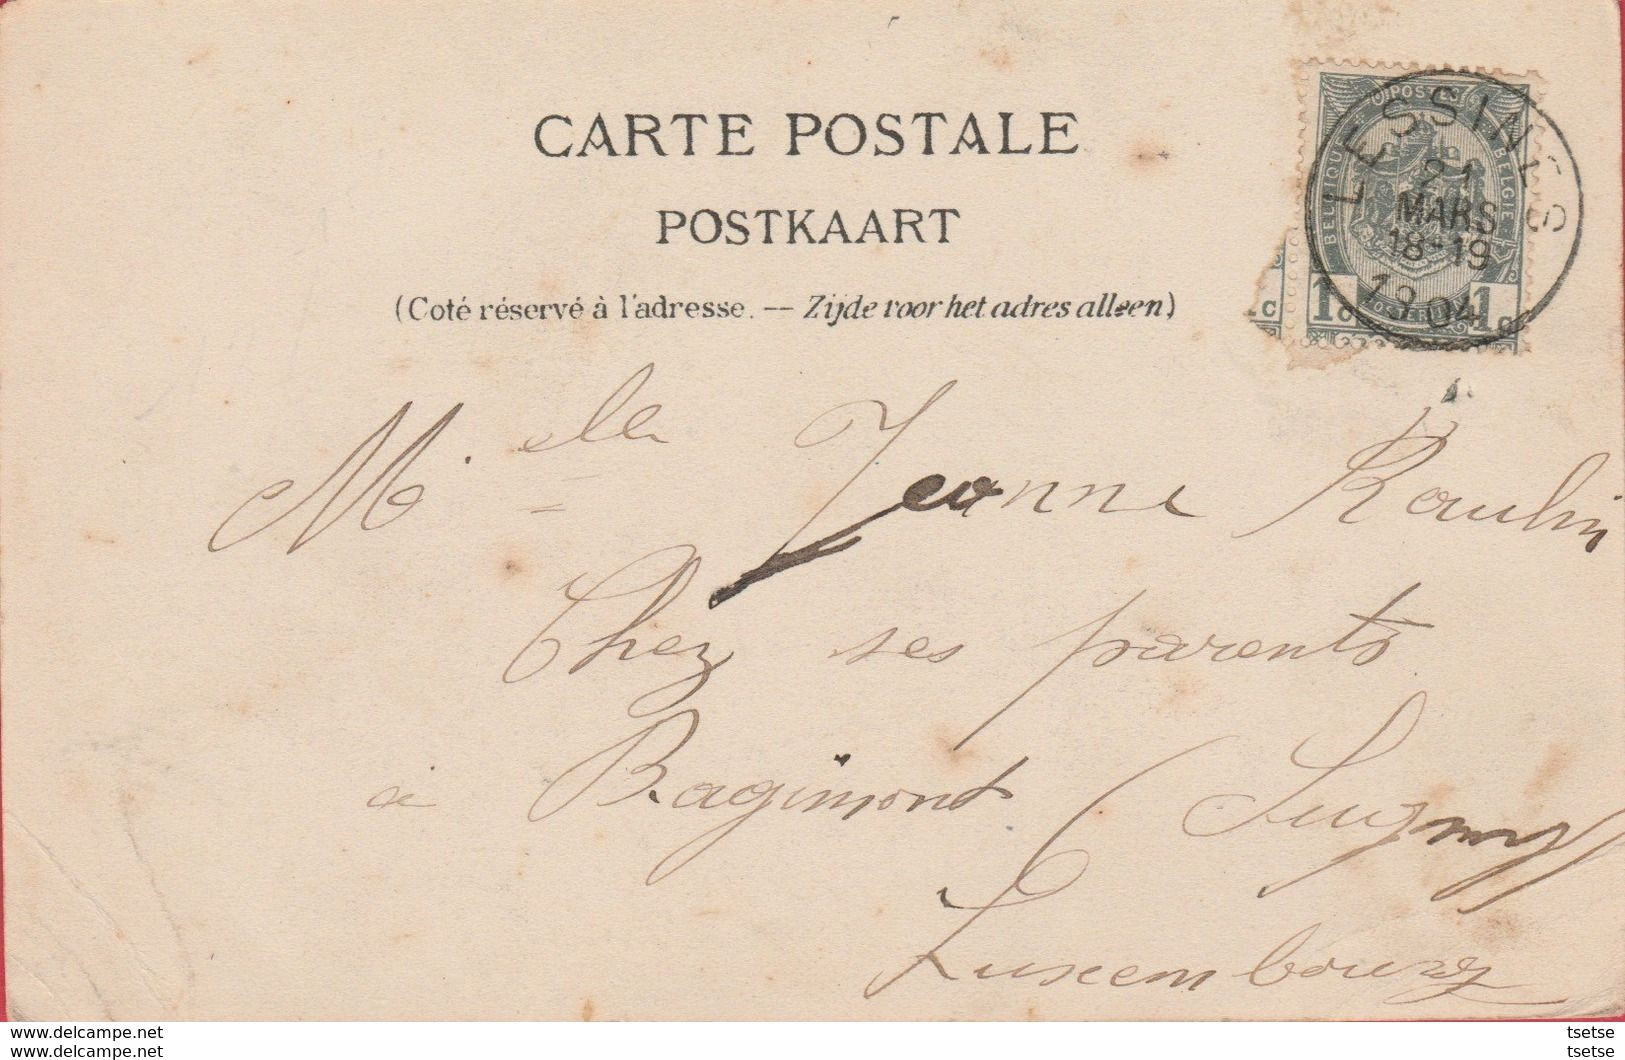 CARTE POSTALE
POSTKAART
(Coté réservé à l'adresse. — Zijde voor het adres alleen)
POSTES
BELGIQUE
BELGIE
1c 1c
1c
LESSINES
21
MARS
18-19
1904
Mlle Jeanne Raulin
Chez ses parents
à Bagimont (Sugny)
Luxembourg
www.delcampe.net
tsetse
www.delcampe.net
tsetse